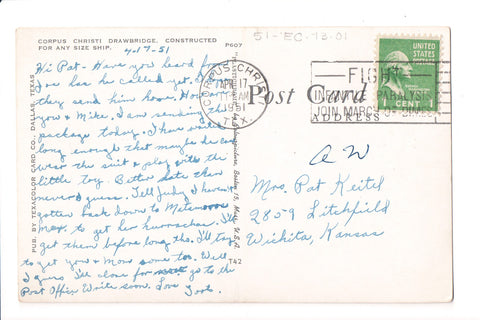 CORPUS CHRISTI DRAWBRIDGE, CONSTRUCTED
FOR ANY SIZE SHIP.
P607
51-EC-1B-01
4-17-51
Hi Pat - Have you heard from
Joe has he called yet. I
they send him home. How
you & Mike. I am sending the
package today. I have waited
long enough that maybe he can
wear the suit & play with the
little toy. Better late than
never I guess. Tell Judy I haven't
gotten back down to
Mex. to get her huarachas. I'll
get them before long tho. I'll try
to get you & Mom some too. Well
I guess I'll close for & go to the
Post Office Write soon. Love Toots.
PUB. BY TEXACOLOR CARD CO., DALLAS, TEXAS
T42
CORPUS CHRISTI
APR 17
AM
1951
TEX.
FIGHT
INFANTILE PARALYSIS
JOIN MARCH OF DIMES
UNITED
STATES
POSTAGE
1 CENT 1
Post Card
ADDRESS
Mrs. Pat Keitel
2859 Litchfield
Wichita, Kansas